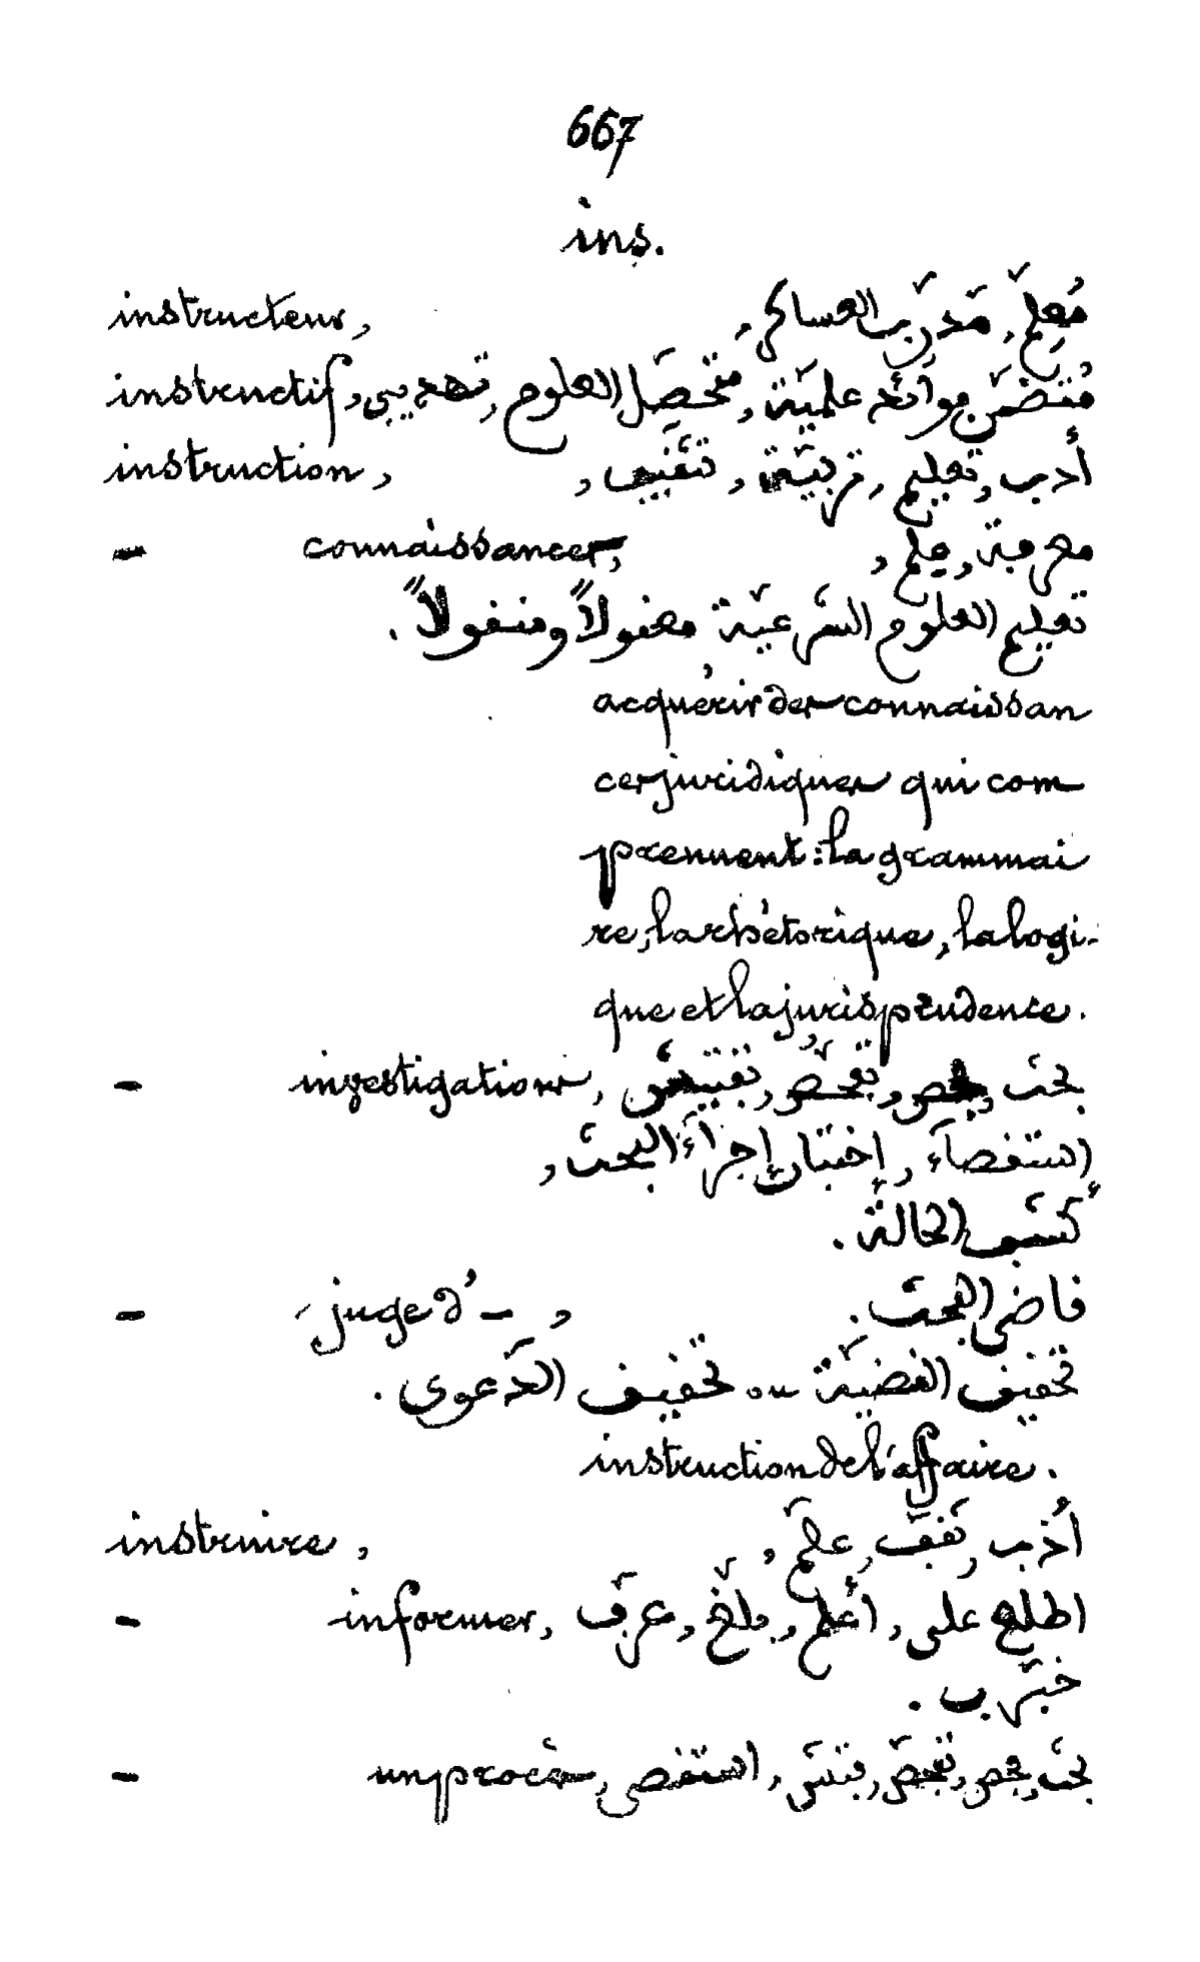 667
ins.
instructeur, مُعلِّم, مَدرِّب العساكر,
instructif, مُتضمّن فوائد علميّة, متحصّل العلوم, تهذيبي,
instruction, أدب, تعليم, تربيّة, تثقيف,
– connaissances, معرفة, علم,
تعليم العلوم الشّرعيّة معقولاً ومنقولاً.
acquérir des connaissan
ces juridiques qui com
prennent: la grammai
re, la rhétorique, la logi-
que et la jurisprudence.
– investigations, بحث, فحص, تفحّص, تفتيش,
استقصآء, إختبار, إجرآء البحث,
كشف الحالة.
– juge d'–, قاضي البحث.
تحقيق القضيّة ou تحقيق الدّعوى.
instruction de l'affaire.
instruire, أدّب, ثقّف, علّم,
– informer, اطلع على, أعلم, بلّغ, عرّف
خبّر ب.
– un procès, بحث, فحص, تفحّص, فتّش, استقصى